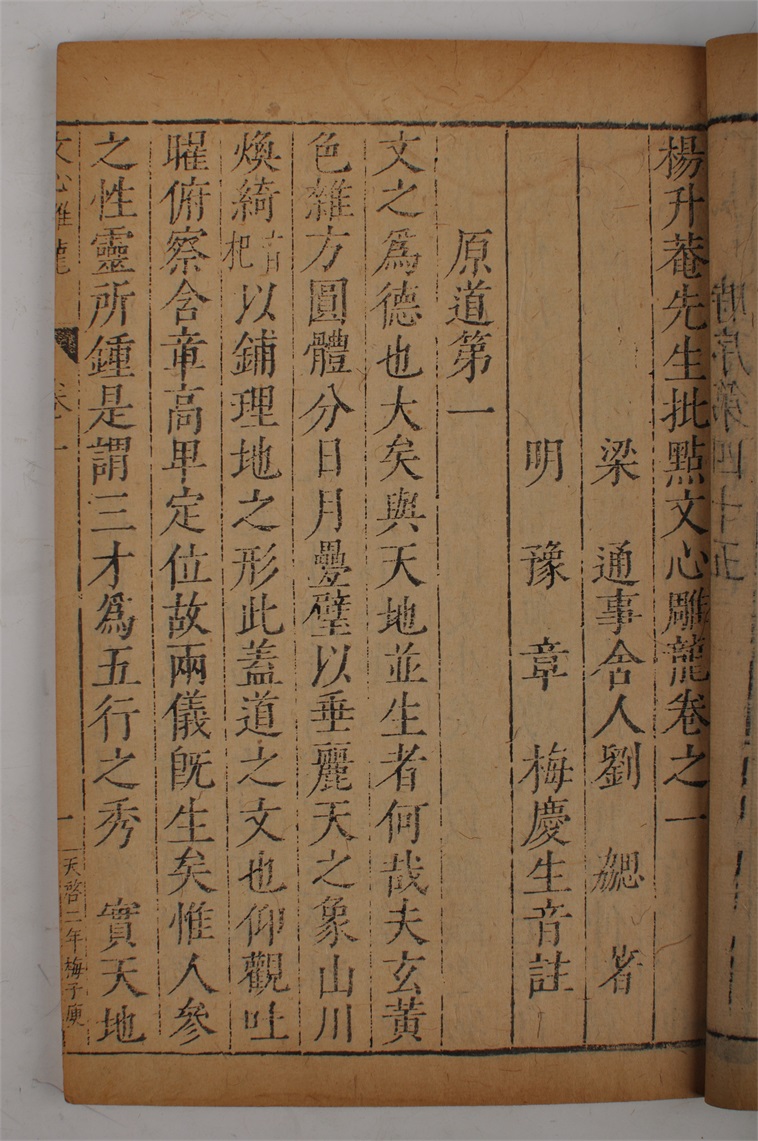 楊升菴先生批點文心雕龍卷之一
梁 通事舍人劉 勰 著
明 豫章 梅慶生音註
原道第一
文之為德也大矣與天地並生者何哉夫玄黃
色雜方圓體分日月疊璧以垂麗天之象山川
煥綺以鋪理地之形此蓋道之文也仰觀吐
曜俯察含章高卑定位故兩儀既生矣惟人參
之性靈所鍾是謂三才為五行之秀 實天地
文心雕龍 卷一 一
天啓二年梅子庾